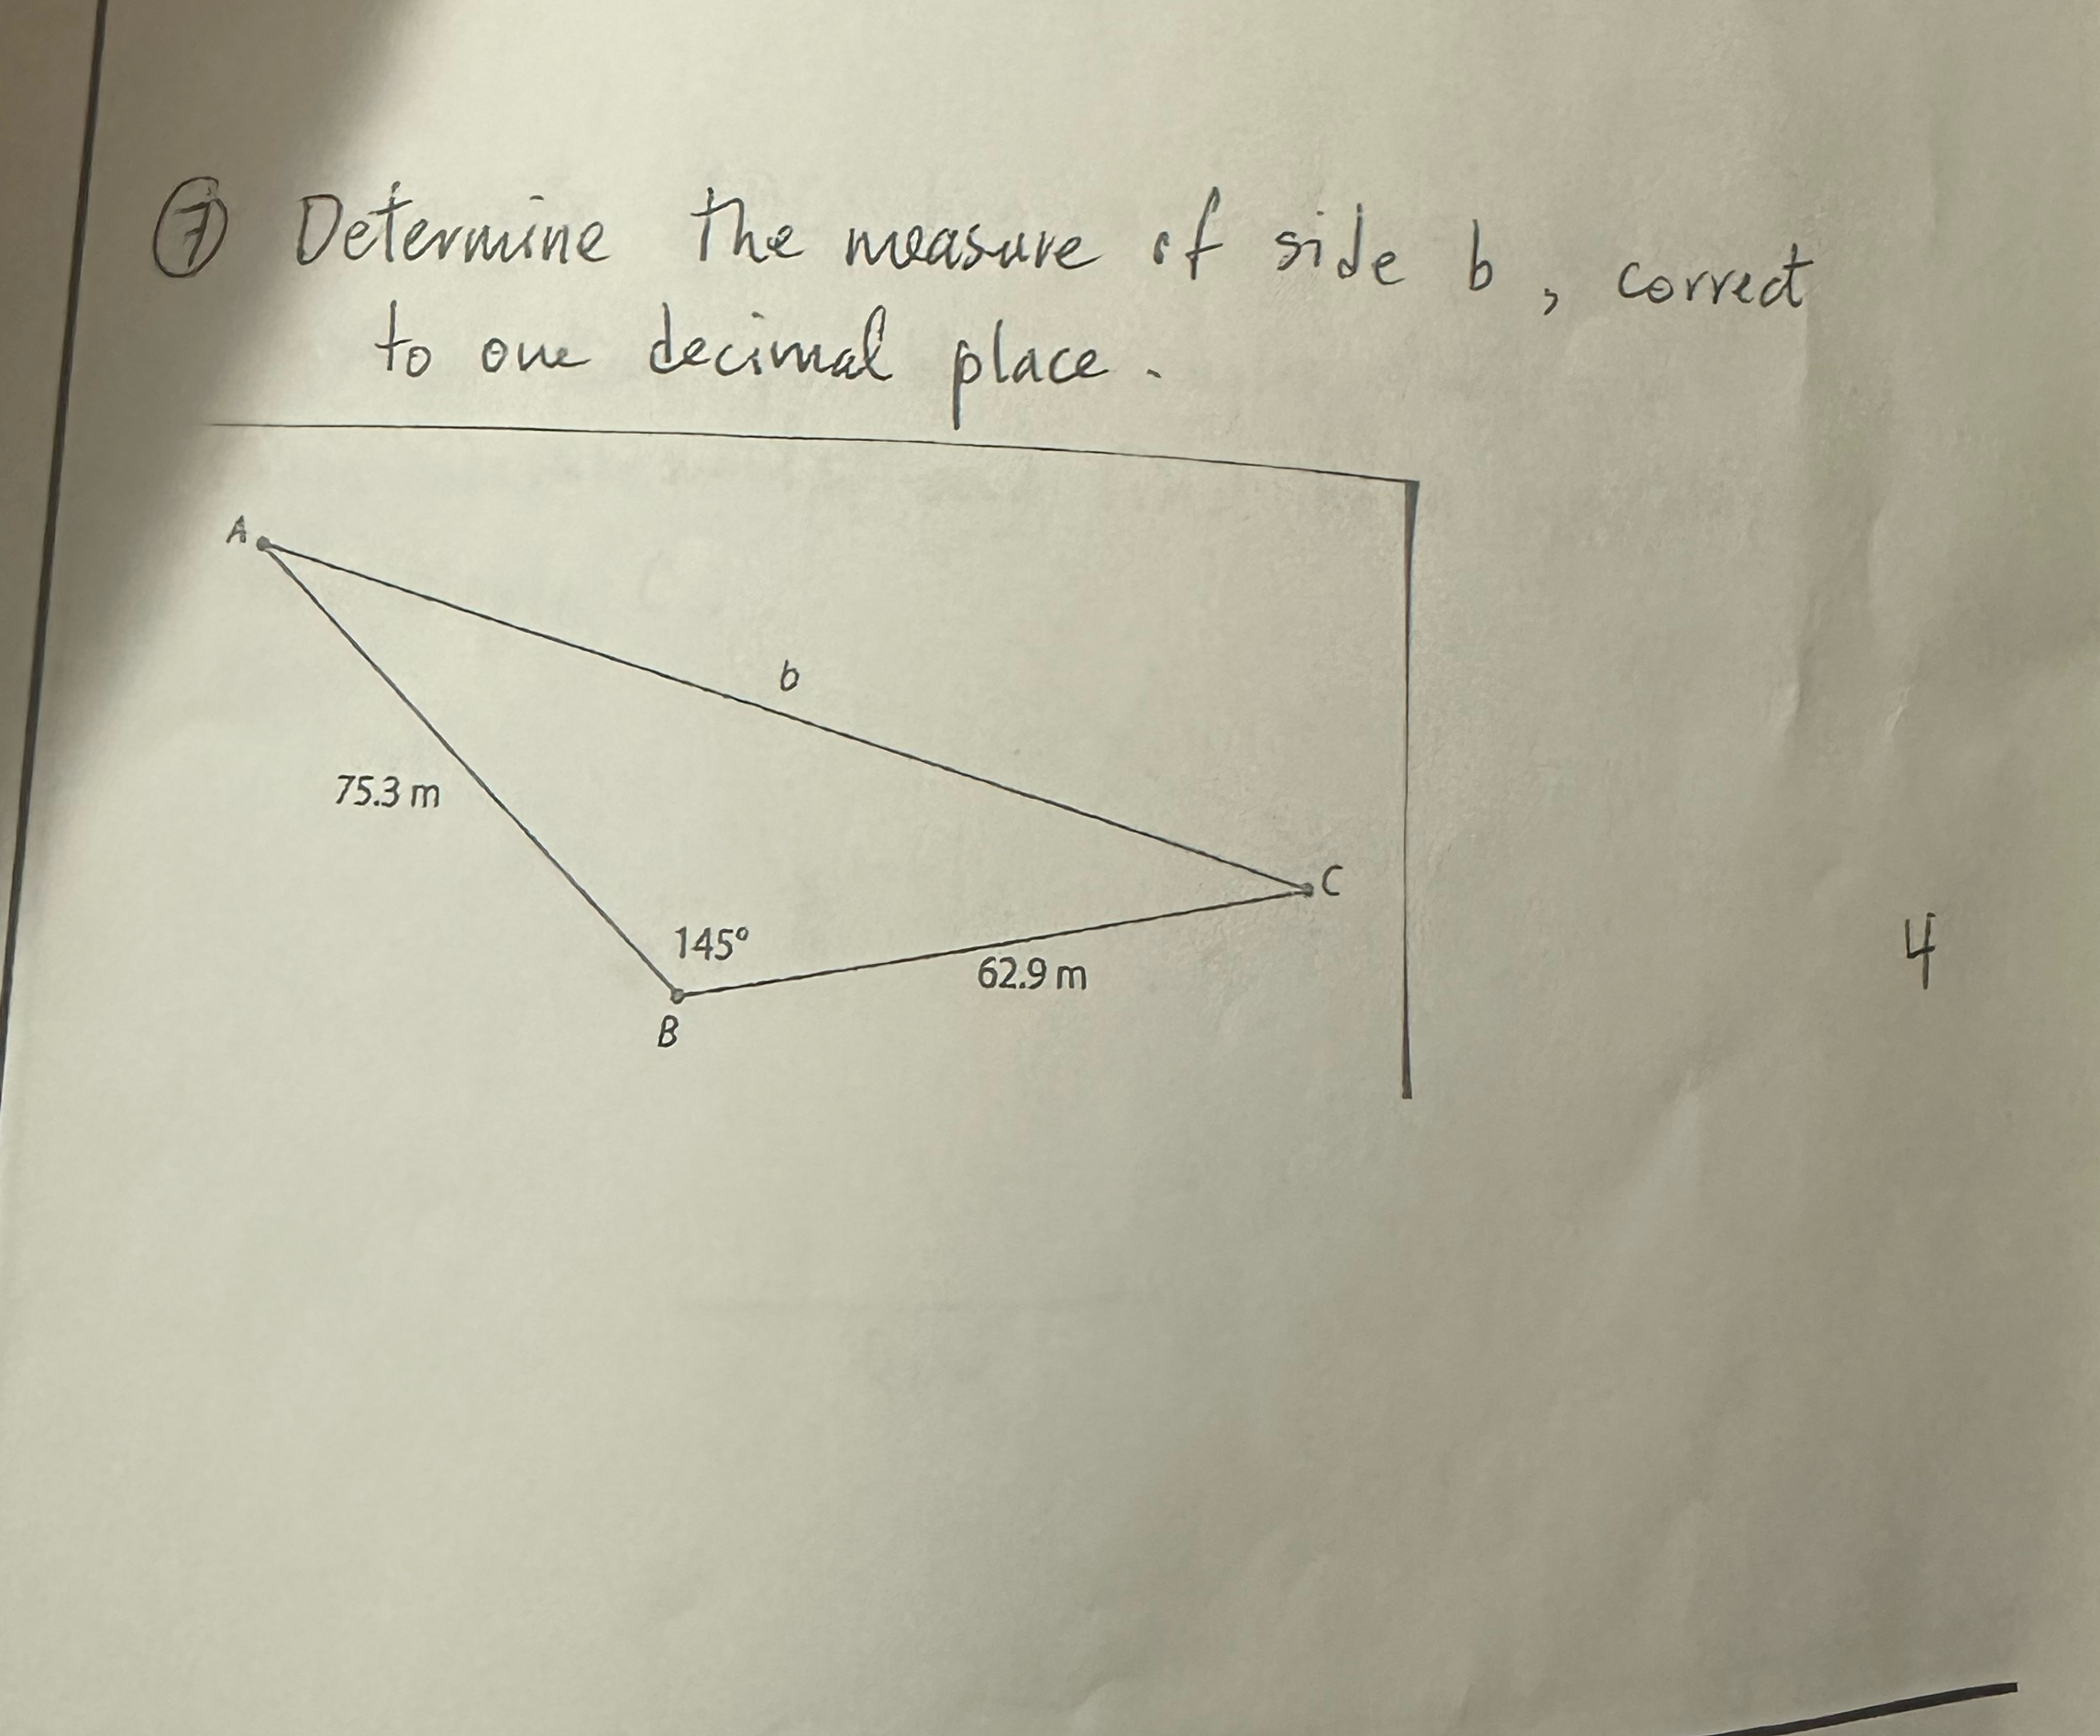 ⑦ Determine the measure of side b, correct
to one decimal place.
A
b
75.3 m
C
145°
62.9 m
4
B